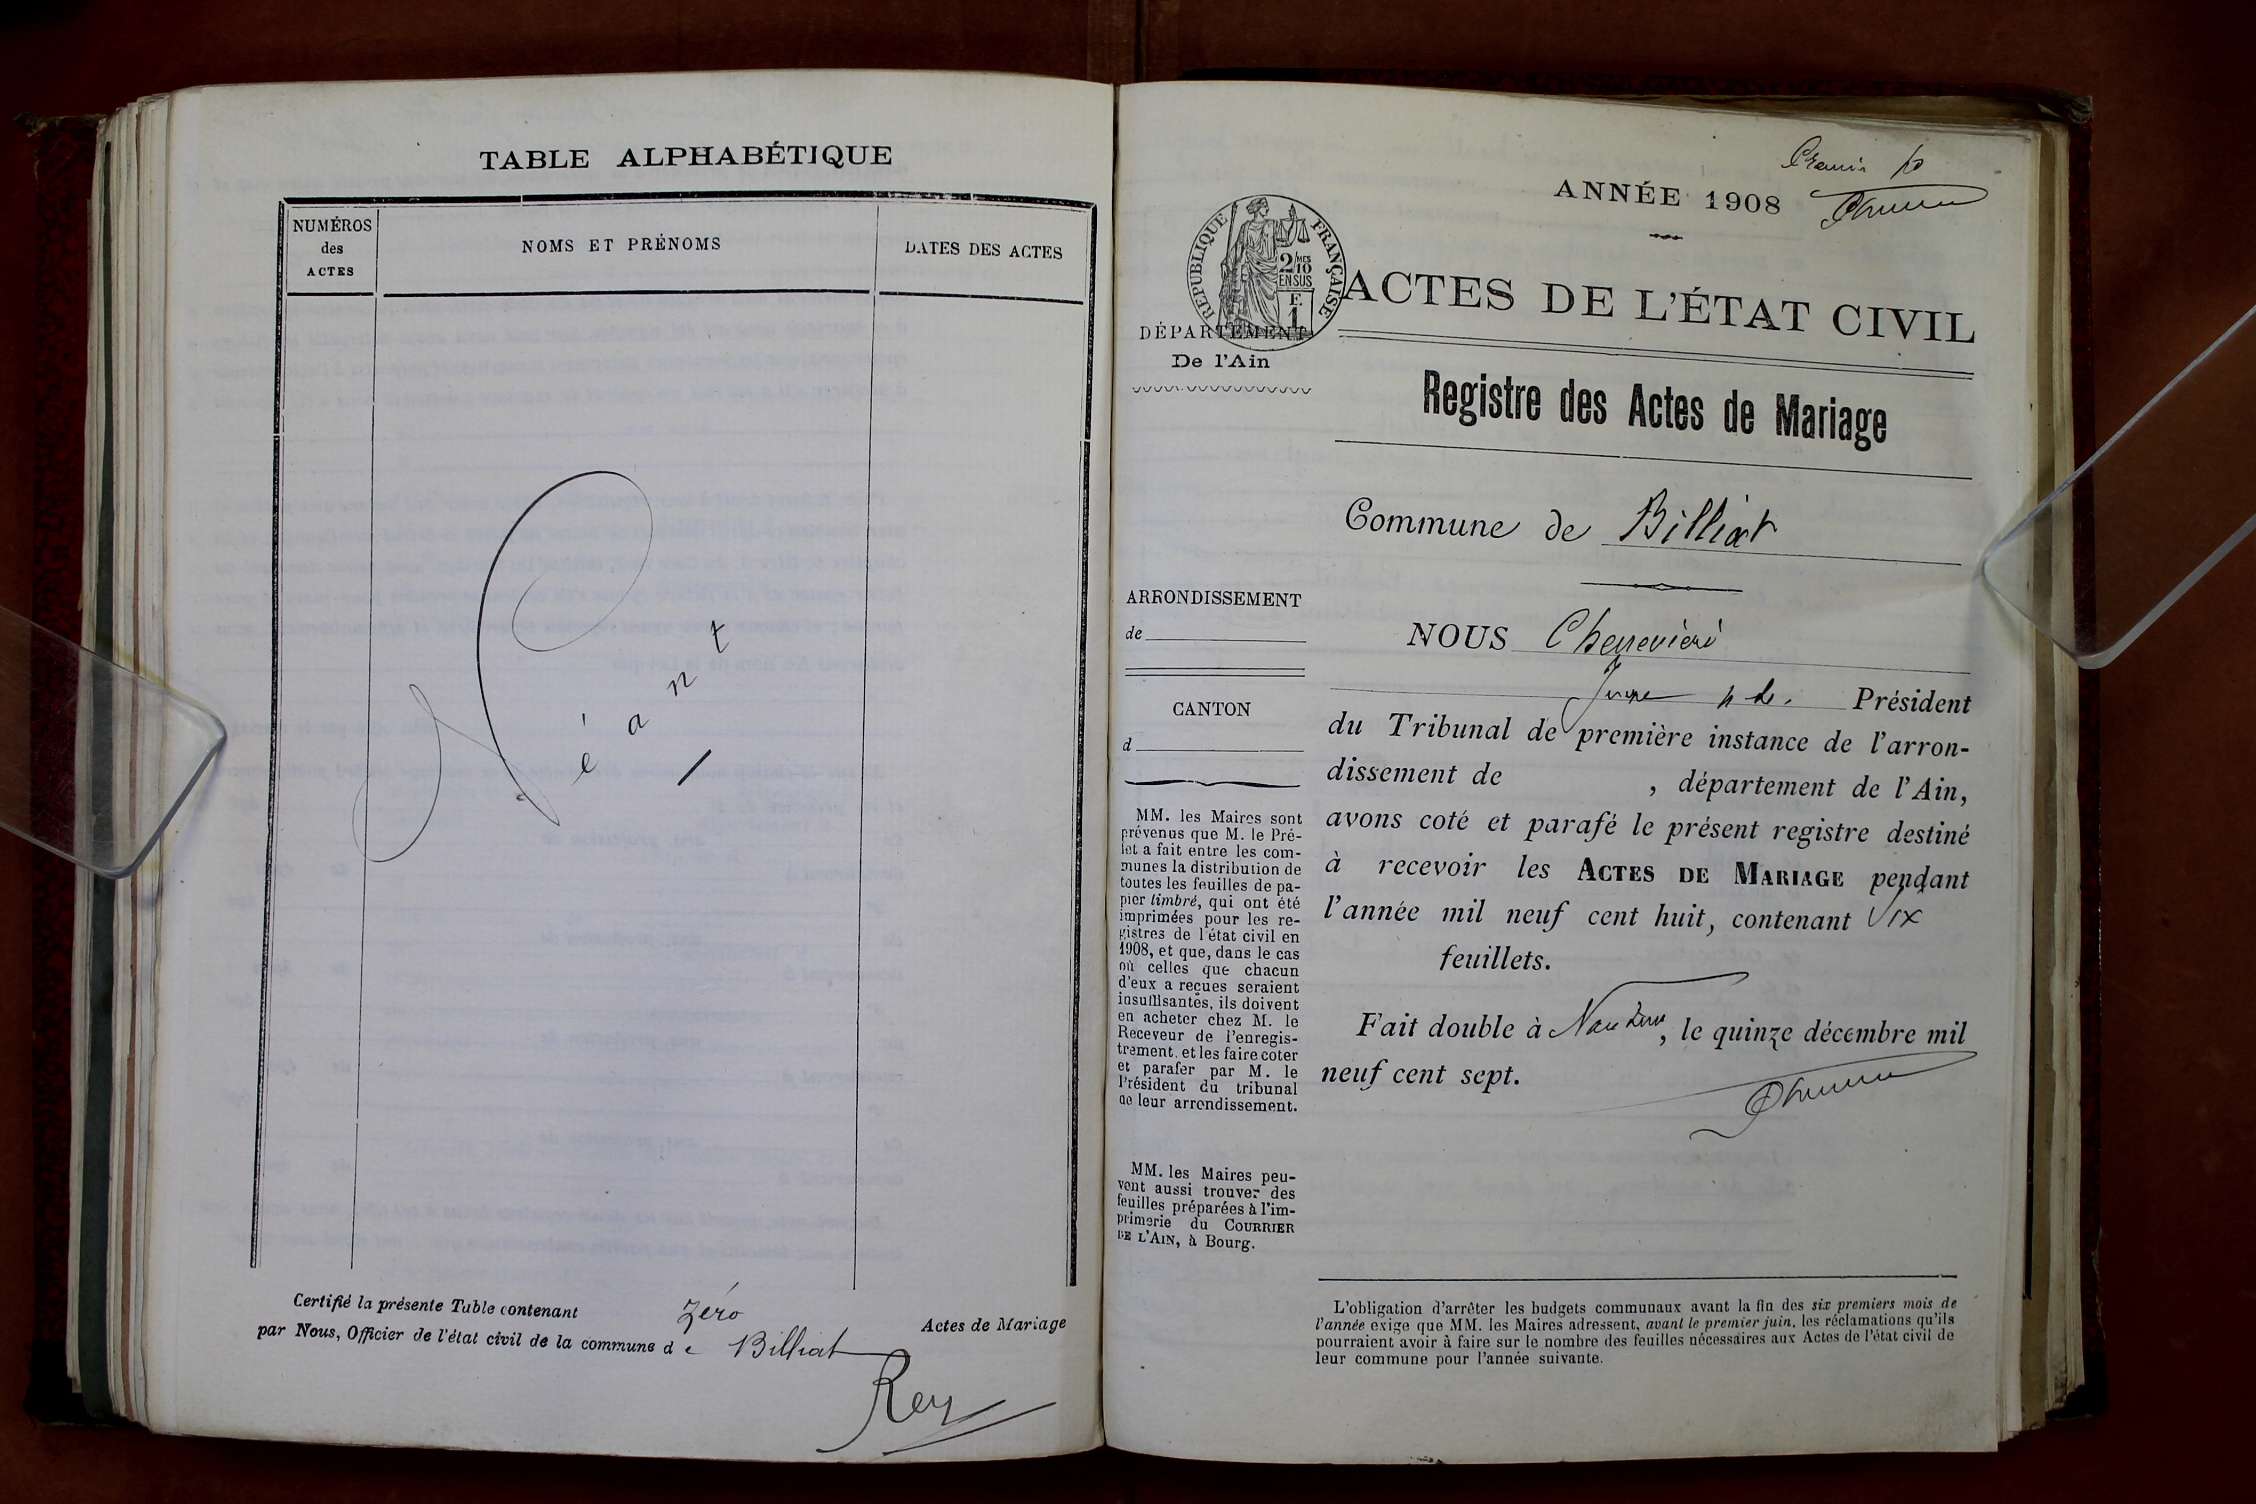 TABLE ALPHABÉTIQUE
NUMÉROS
des
ACTES
NOMS ET PRÉNOMS
DATES DES ACTES
Néant
Certifié la présente Table contenant zéro Actes de Mariage
par Nous, Officier de l'état civil de la commune de Billiat
Rey
Premier
ANNÉE 1908
RÉPUBLIQUE FRANÇAISE
2/10
MES
EN SUS
F.
1
ACTES DE L'ÉTAT CIVIL
DÉPARTEMENT
De l'Ain
Registre des Actes de Mariage
Commune de Billiat
ARRONDISSEMENT
de
CANTON
d
MM. les Maires sont
prévenus que M. le Pré-
fet a fait entre les com-
munes la distribution de
toutes les feuilles de pa-
pier timbré, qui ont été
imprimées pour les re-
gistres de l'état civil en
1908, et que, dans le cas
où celles que chacun
d'eux a reçues seraient
insuffisantes, ils doivent
en acheter chez M. le
Receveur de l'enregis-
trement, et les faire coter
et parafer par M. le
Président du tribunal
de leur arrondissement.
MM. les Maires peu-
vent aussi trouver des
feuilles préparées à l'im-
primerie du COURRIER
DE L'AIN, à Bourg.
NOUS
Président
du Tribunal de première instance de l'arron-
dissement de , département de l'Ain,
avons coté et parafé le présent registre destiné
à recevoir les ACTES DE MARIAGE pendant
l'année mil neuf cent huit, contenant
feuillets.
Fait double à Nantua, le quinze décembre mil
neuf cent sept.
L'obligation d'arrêter les budgets communaux avant la fin des six premiers mois de
l'année exige que MM. les Maires adressent, avant le premier juin, les réclamations qu'ils
pourraient avoir à faire sur le nombre des feuilles nécessaires aux Actes de l'état civil de
leur commune pour l'année suivante.